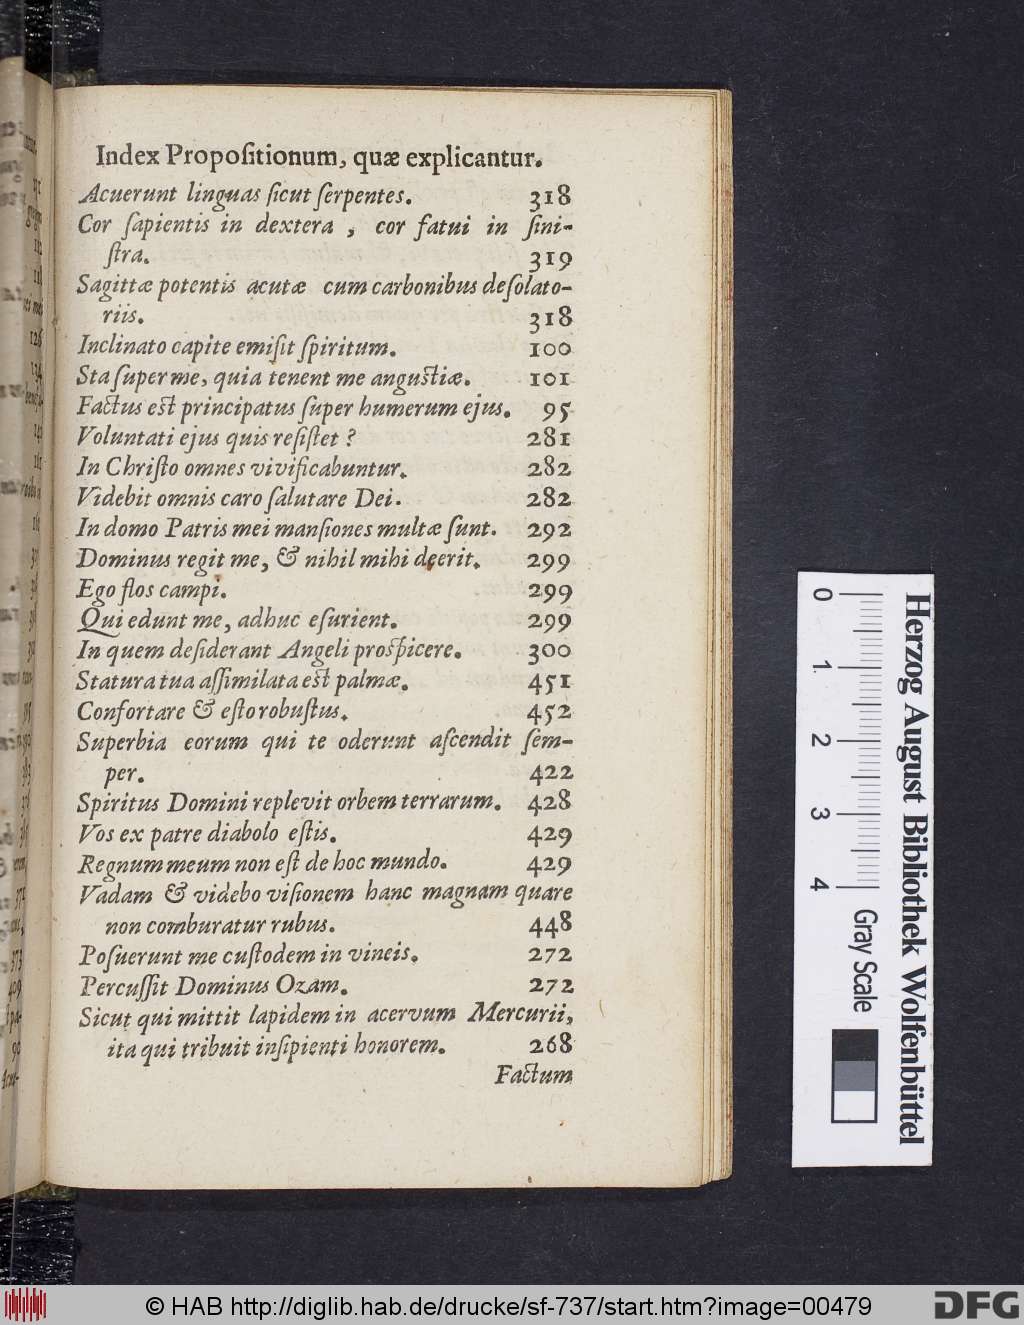 Index Propoſitionum, quæ explicantur.
Acuerunt linguas ſicut ſerpentes. 318
Cor ſapientis in dextera, cor fatui in ſini-
ſtra. 319
Sagittæ potentis acutæ cum carbonibus deſolato-
riis. 318
Inclinato capite emiſit ſpiritum. 100
Sta ſuper me, quia tenent me anguſtiæ. 101
Factus eſt principatus ſuper humerum ejus. 95
Voluntati ejus quis reſiſtet? 281
In Chriſto omnes vivificabuntur. 282
Videbit omnis caro ſalutare Dei. 282
In domo Patris mei manſiones multæ ſunt. 292
Dominus regit me, & nihil mihi deerit. 299
Ego flos campi. 299
Qui edunt me, adhuc eſurient. 299
In quem deſiderant Angeli proſpicere. 300
Statura tua aſſimilata eſt palmæ. 451
Confortare & eſto robuſtus. 452
Superbia eorum qui te oderunt aſcendit ſem-
per. 422
Spiritus Domini replevit orbem terrarum. 428
Vos ex patre diabolo eſtis. 429
Regnum meum non eſt de hoc mundo. 429
Vadam & videbo viſionem hanc magnam quare
non comburatur rubus. 448
Poſuerunt me cuſtodem in vineis. 272
Percuſſit Dominus Ozam. 272
Sicut qui mittit lapidem in acervum Mercurii,
ita qui tribuit inſipienti honorem. 268
Factum
0 1 2 3 4 Gray Scale
Herzog August Bibliothek Wolfenbüttel
© HAB http://diglib.hab.de/drucke/sf-737/start.htm?image=00479
DFG